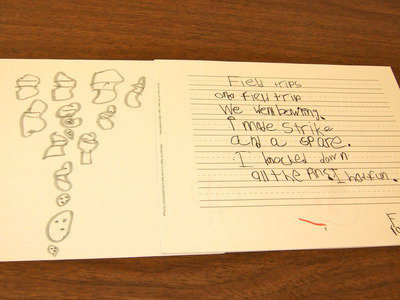 Field trips
one field trip
We went bowling.
I made strike
and a spare.
I knocked down
all the Pins. I had fun.
F